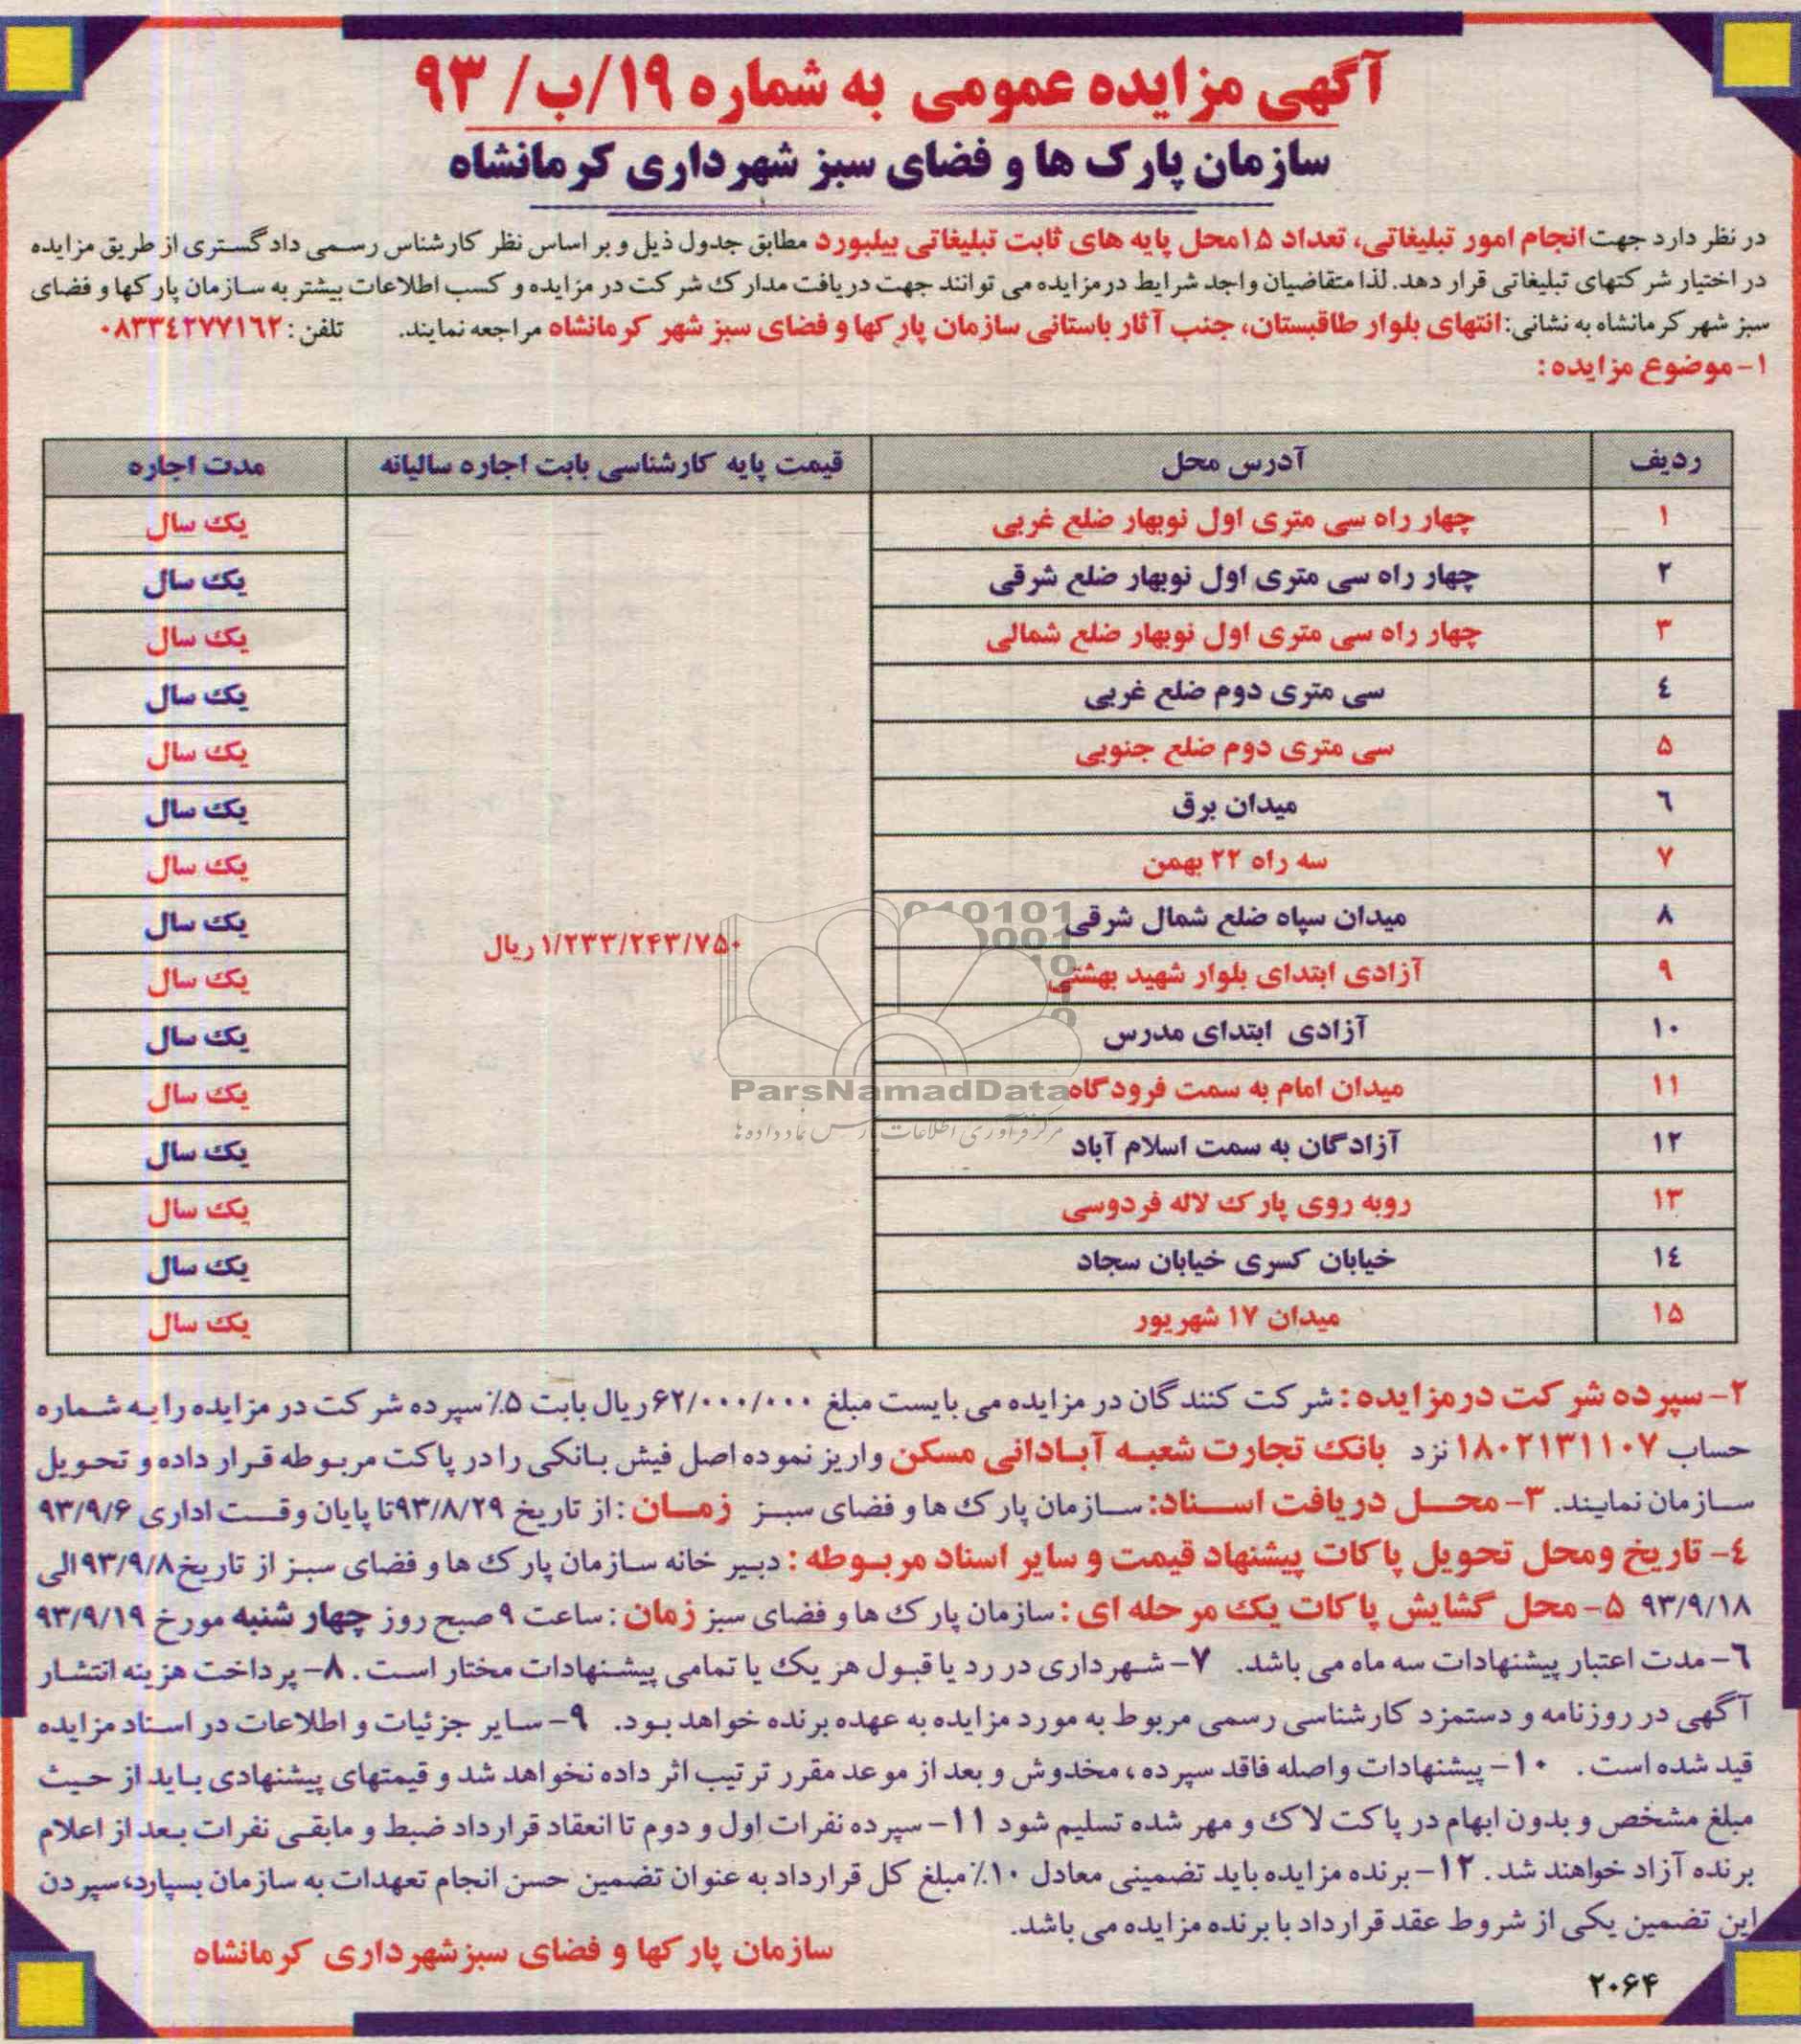 آگهی مزایده عمومی به شماره ۱۹/ب/ ۹۳
سازمان پارک ها و فضای سبز شهرداری کرمانشاه
در نظر دارد جهت انجام امور تبلیغاتی، تعداد ۱۵محل پایه های ثابت تبلیغاتی بیلبورد مطابق جدول ذیل و بر اساس نظر کارشناس رسمی دادگستری از طریق مزایده
در اختیار شرکتهای تبلیغاتی قرار دهد. لذا متقاضیان واجد شرایط درمزایده می توانند جهت دریافت مدارک شرکت در مزایده و کسب اطلاعات بیشتر به سازمان پارکها و فضای
سبز شهر کرمانشاه به نشانی: انتهای بلوار طاقبستان، جنب آثار باستانی سازمان پارکها و فضای سبز شهر کرمانشاه مراجعه نمایند. تلفن: ۰۸۳۳٤۲۷۷۱٦۲
۱- موضوع مزایده:
ردیف آدرس محل قیمت پایه کارشناسی بابت اجاره سالیانه مدت اجاره
۱ چهار راه سی متری اول نوبهار ضلع غربی یک سال
۲ چهار راه سی متری اول نوبهار ضلع شرقی یک سال
۳ چهار راه سی متری اول نوبهار ضلع شمالی یک سال
٤ سی متری دوم ضلع غربی یک سال
۵ سی متری دوم ضلع جنوبی یک سال
٦ میدان برق یک سال
۷ سه راه ۲۲ بهمن یک سال
۸ میدان سپاه ضلع شمال شرقی یک سال
۱/۲۳۳/۲۴۳/۷۵۰ ریال
۹ آزادی ابتدای بلوار شهید بهشتی یک سال
۱۰ آزادی ابتدای مدرس یک سال
۱۱ میدان امام به سمت فرودگاه یک سال
۱۲ آزادگان به سمت اسلام آباد یک سال
۱۳ روبه روی پارک لاله فردوسی یک سال
۱٤ خیابان کسری خیابان سجاد یک سال
۱۵ میدان ۱۷ شهریور یک سال
ParsNamadData
مرکز فرآوری اطلاعات پارس نماد داده ها
۲- سپرده شرکت درمزایده: شرکت کنندگان در مزایده می بایست مبلغ ۶۲/۰۰۰/۰۰۰ ریال بابت ۵٪ سپرده شرکت در مزایده را به شماره
حساب ۱۸۰۲۱۳۱۱۰۷ نزد بانک تجارت شعبه آبادانی مسکن واریز نموده اصل فیش بانکی را در پاکت مربوطه قرار داده و تحویل
سازمان نمایند. ۳- محل دریافت اسناد: سازمان پارک ها و فضای سبز زمان: از تاریخ ۹۳/۸/۲۹تا پایان وقت اداری ۹۳/۹/۶
٤- تاریخ ومحل تحویل پاکات پیشنهاد قیمت و سایر اسناد مربوطه: دبیر خانه سازمان پارک ها و فضای سبز از تاریخ۹۳/۹/۸الی
۹۳/۹/۱۸ ۵- محل گشایش پاکات یک مرحله ای: سازمان پارک ها و فضای سبز زمان: ساعت ۹صبح روز چهارشنبه مورخ ۹۳/۹/۱۹
٦- مدت اعتبار پیشنهادات سه ماه می باشد. ۷- شهرداری در رد یا قبول هر یک یا تمامی پیشنهادات مختار است. ۸- پرداخت هزینه انتشار
آگهی در روزنامه و دستمزد کارشناسی رسمی مربوط به مورد مزایده به عهده برنده خواهد بود. ۹- سایر جزئیات و اطلاعات در اسناد مزایده
قید شده است. ۱۰- پیشنهادات واصله فاقد سپرده، مخدوش و بعد از موعد مقرر ترتیب اثر داده نخواهد شد و قیمتهای پیشنهادی باید از حیث
مبلغ مشخص و بدون ابهام در پاکت لاک و مهر شده تسلیم شود ۱۱- سپرده نفرات اول و دوم تا انعقاد قرارداد ضبط و مابقی نفرات بعد از اعلام
برنده آزاد خواهند شد. ۱۲- برنده مزایده باید تضمینی معادل ۱۰٪ مبلغ کل قرارداد به عنوان تضمین حسن انجام تعهدات به سازمان بسپارد، سپردن
این تضمین یکی از شروط عقد قرارداد با برنده مزایده می باشد.
سازمان پارکها و فضای سبز شهرداری کرمانشاه
۲۰۶۴